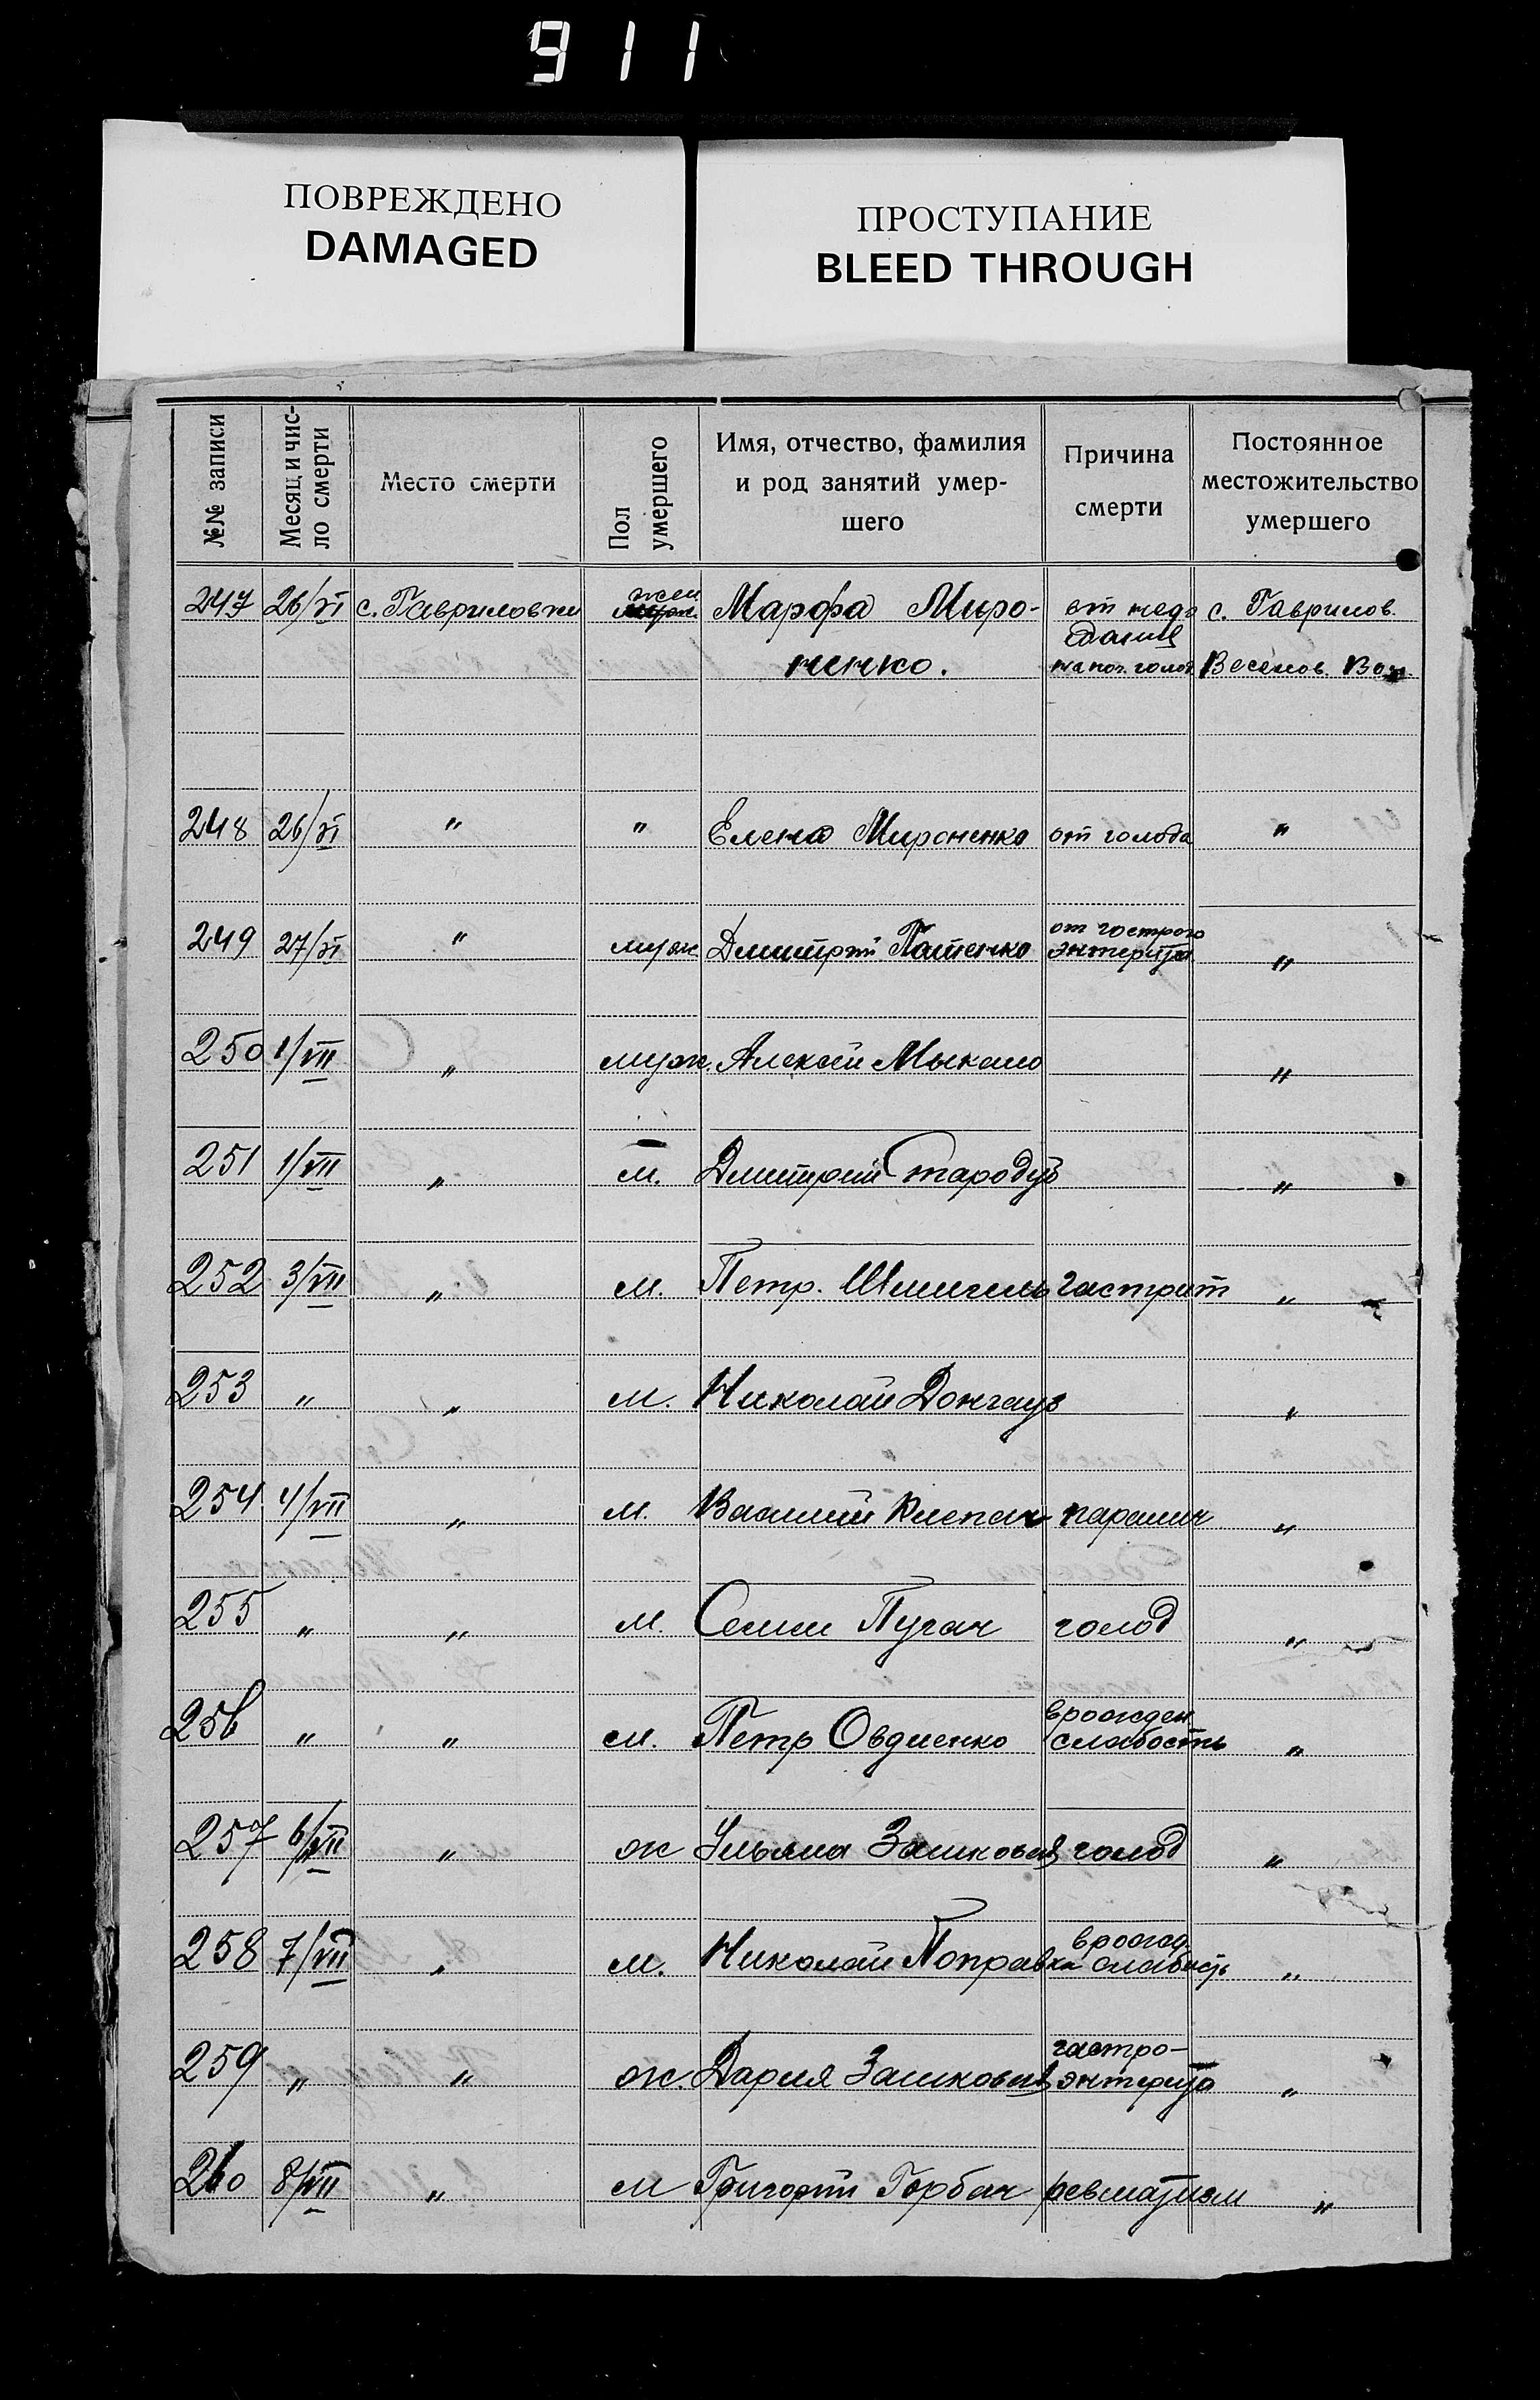 911
ПОВРЕЖДЕНО
DAMAGED
ПРОСТУПАНИЕ
BLEED THROUGH
№№ записи
Месяц и чис-
ло смерти
Место смерти
Пол
умершего
Имя, отчество, фамилия
и род занятий умер-
шего
Причина
смерти
Постоянное
местожительство
умершего
247 26/VI с. Гавриловки жен Марфа Миро- от недо с. Гаврилов.
ненко. едания на поч. голод Веселов. Вол.
248 26/VI " " Елена Мироненко от голода "
249 27/VI " муж Дмитрий Патенко от гострого энтерита "
250 1/VII " муж. Алексей Мыкало "
251 1/VII " м. Дмитрий Стародуб "
252 3/VII " м. Петр. Шмигель гастрит "
253 " " м. Николай Донгауз "
254 4/VII " м. Василий Клепач паралич "
255 " " м. Семен Пугач голод "
256 " " м. Петр Овдиенко врожден слабость "
257 6/VII " ж Ульяна Зашковая голод "
258 7/VII " м. Николай Поправка врожд слабость "
259 " " ж. Дария Зашковая гастро-
энтерита "
260 8/VII " м Григорий Горбач ревматизм "